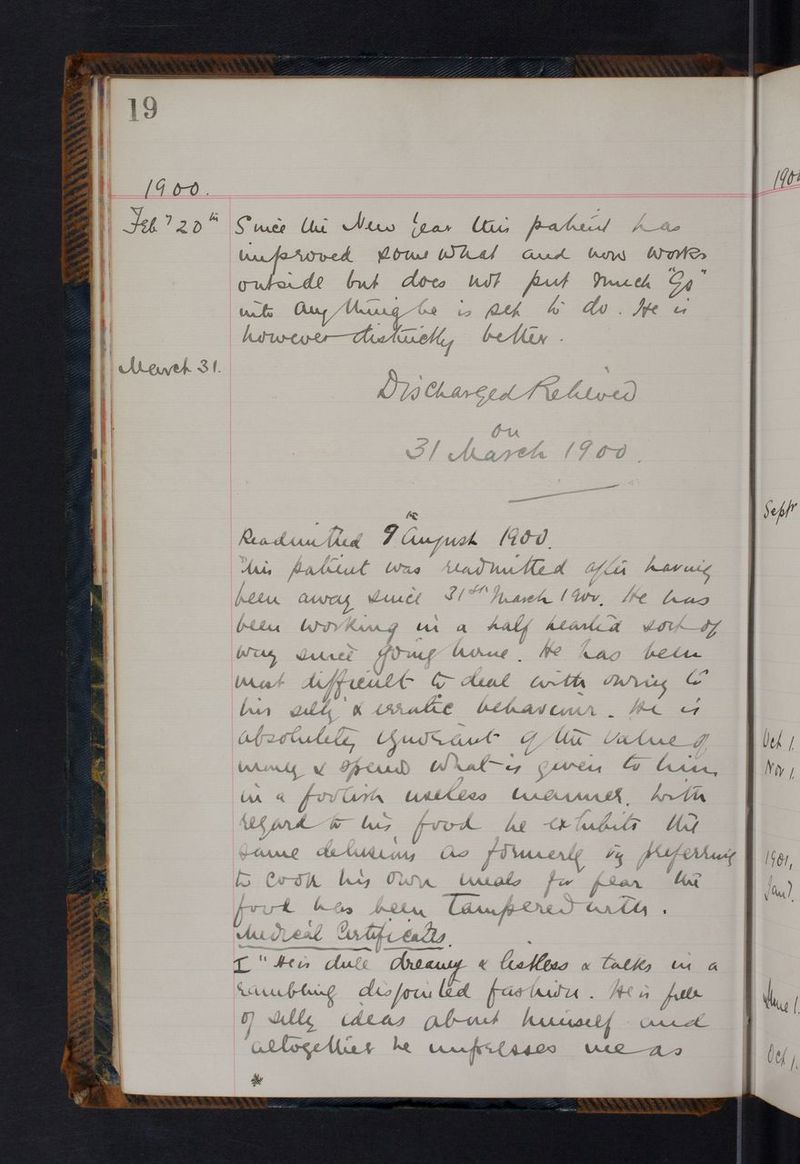 19
1900.
Feby 20th Since the New Year this patient has
improved somewhat and now works
outside but does not put much "Go"
into anything he is set to do. He is
however distinctly better.
March 31.
Discharged Relieved
on
31 March 1900.
Readmitted 9th August 1900.
This patient was readmitted after having
been away since 31st March 1900. He has
been working in a half hearted sort of
way since going home. He has been
most difficult to deal with owing to
his silly & erratic behaviour. He is
absolutely ignorant of the value of
money & spends what is given to him
in a foolish useless manner. With
regard to his food he exhibits the
same delusions as formerly viz preferring
to cook his own meals for fear the
food has been tampered with.
Medical Certificates.
I "He is dull dreamy & listless & talks in a
rambling disjointed fashion. He is full
of silly ideas about himself and
altogether he impresses me as
190
Septr
Oct 1.
Nov 1.
1901,
Jany.
June 1.
Oct 1.